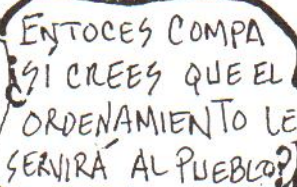 ENTOCES COMPA
¿SI CREES QUE EL
ORDENAMIENTO LE
SERVIRÁ AL PUEBLO?